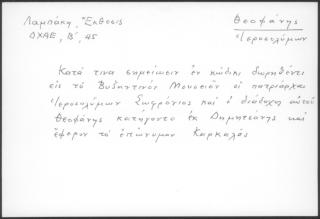 Λαμπάκη, Ἔκθεσις
ΔΧΑΕ, Β', 45
Θεοφάνης
Ἱεροσολύμων
Κατά τινα σημείωσιν ἐν κώδικι δωρηθέντι
εἰς τὸ Βυζαντινὸν Μουσεῖον οἱ πατριάρχαι
Ἱεροσολύμων Σωφρόνιος καὶ ὁ διάδοχος αὐτοῦ
Θεοφάνης κατήγοντο ἐκ Δημητσάνης καὶ
ἔφερον τὸ ἐπώνυμον Καρκαλᾶς